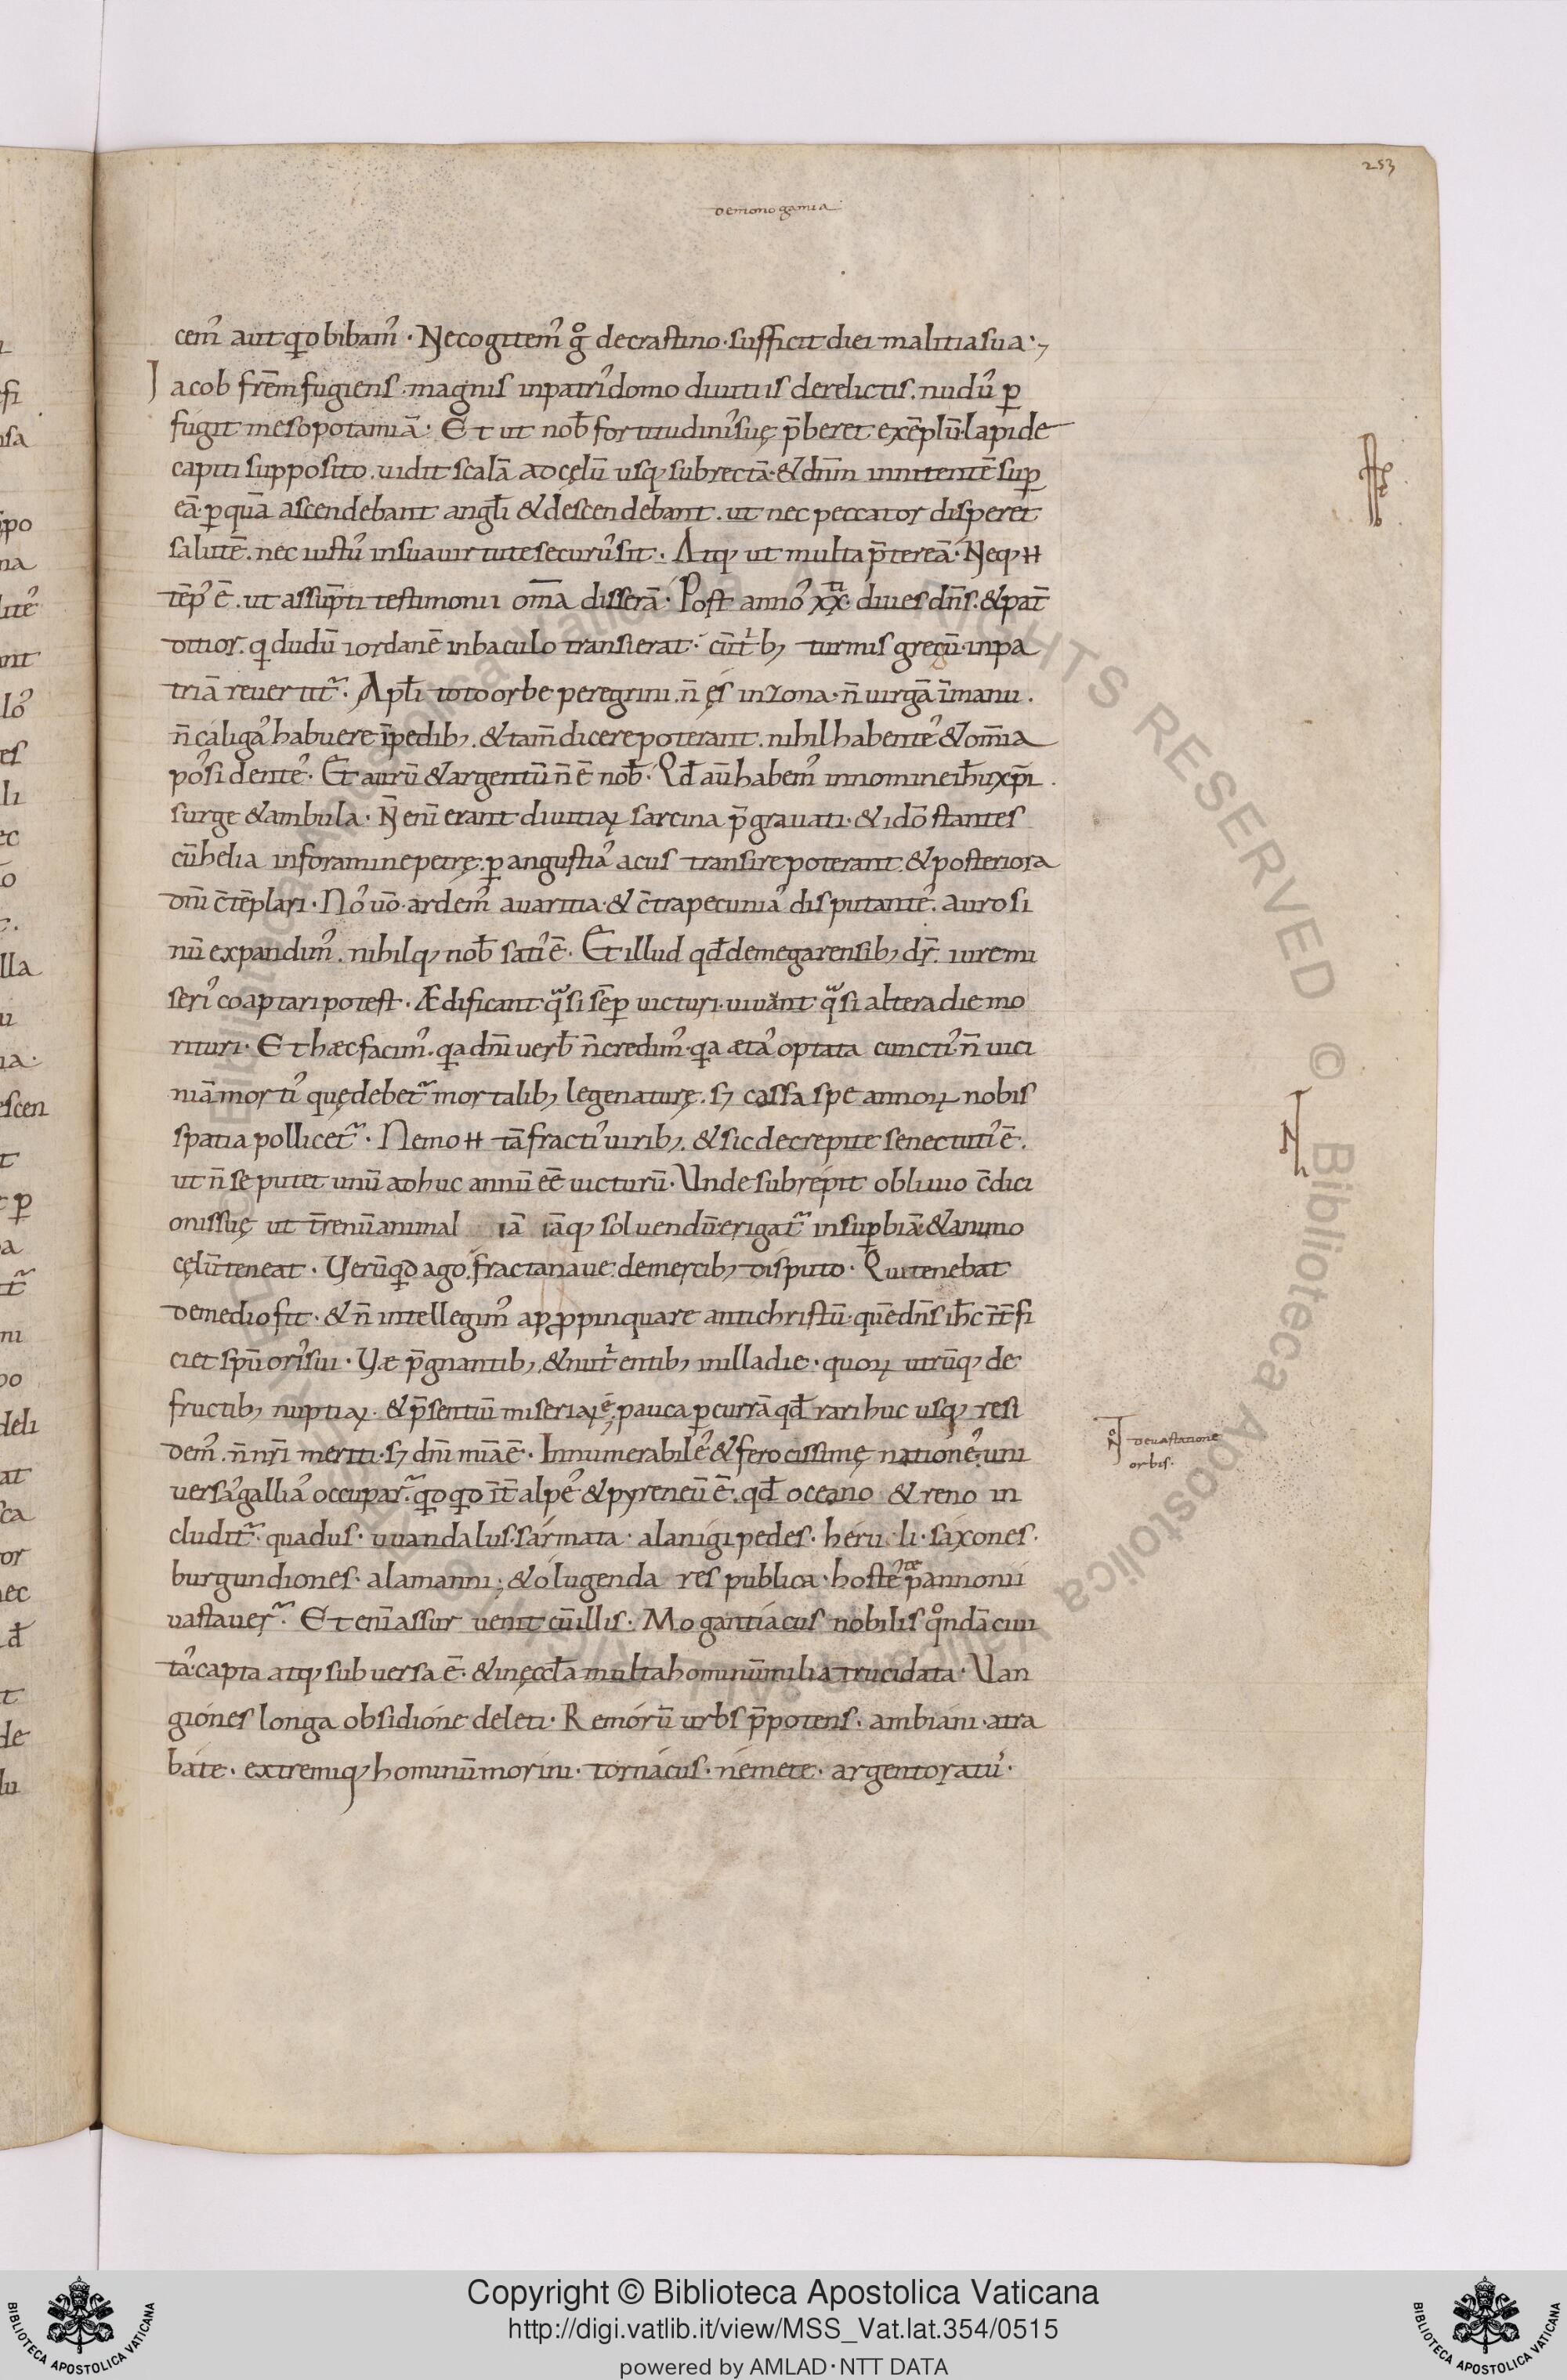 253
demonogamia
cem᾽ aut qđ bibam᾽ · Necogitem᾽ g̊ decrastino · sufficit diei malitiasua ·,
Jacob frēm fugiens · magnis inpatri᾽ domo diuitiis derelictis . nudu᾽ ꝑ
fugit mesopotamiā · Et ut nob̄ fortitudini᾽ suę p̄beret exēplū · lapide
capiti supposito . uidit scalā ad cęlū usq; subrectā · & dnm̄ innitentē sup̱
eā · ꝑ quā ascendebant angłi & descendebant . ut nec peccator disperet
salutē . nec iustu᾽ insuauirtute securu᾽ sit . Atq; ut multa p̄tereā · Neq; ħ
tēp᾽ ē . ut assūpti testimonii om̄a disserā · Post anno᾽ xx᷒ · diues dn̄s . & pat̄
ditior . q dudū iordanē inbaculo transierat · cū trib; turmis gregū · inpa
triā reuertit᷑ · Apłi toto orbe peregrini . n̄ ęs in zona · n̄ uirgā ī manu .
n̄ caliga᾽ habuere īpedib; . & tam̄ dicere poterant . nihil habente᾽ & om̄ia
po᾽sidente᾽ · Et aurū & argentū n̄ ē nob̄ · Qđ aū habem᾽ innomine iħu xp̄i .
surge & ambula · N̄ eni erant diuitiaꝝ sarcina p̄grauati · & idō stantes
cū helia inforamine petrę . ꝑ angustia᾽ acus transire poterant . & posteriora
dni c̄tēplari · No᾽ uō · ardem᾽ auaritia · & c̄tra pecunia᾽ disputante᾽ . auro si
nū expandim᾽ . nihilq; nob̄ sati᾽ ē · Et illud qđ demegarensib; dr̄ . iure mi
seri᾽ coaptari potest . Ædificant qᷓsi sēꝑ uicturi . uiuant qᷓsi altera die mo
rituri · Et hæc facim᾽ . qa dni uerb̄ n̄ credim᾽ · qa æta᾽ optata cuncti᾽ . n̄ uici
niā morti᾽ quę debet᷑ mortalib; lege naturę . s; cassa spe annoꝝ nobis
spatia pollicet᷑ · Nemo ħ tā fracti᾽ uirib; . & sic decrepite senectuti᾽ ē .
ut n̄ se putet unū adhuc annū ēē uicturū . Unde subrepit obliuio c̄dici
onissuę ut t̄renū animal iā iāq; soluendū · erigat᷑ insuꝑbiā · & animo
cęlū teneat . Uerū qđ ago . fracta naue . demercib; disputo · Qui tenebat
demedio fit · & n̄ intellegim᾽ apꝓpinquare antichristū · quē dn̄s iħc īt̄fi
ciet spū ori᾽ sui . Uæ p̄gnantib; . & nutrientib; inilla die · quoꝝ utrūq; de
fructib; nuptiaꝝ . & p̄sentiū miseriaꝝ ē . pauca ꝑcurrā qđ rari huc usq; resi
dem᾽ . n̄ nr̄i meriti . s; dni mia ē · Innumerabile᾽ & ferocissimę natione᾽ . uni
uersa᾽ gallia᾽ occupar᷑ . qđ qđ īt̄ alpe᾽ & pyreneū ē . qđ oceano & reno in
cludit᷑ . quadus . uuandalus . sarmata . alani gipedes . heruli . saxones .
burgundiones . alamanni ; & o lugenda res publica . hoste᾽ pannonii
uastauer᷑ . Et eni assur uenit cū illis . Mogantiacus nobilis qͦndā ciui
ta᾽ · capta atq; subuersa ē . & in ęccła multa hominū milia trucidata . Uan
giones longa obsidione deleti . Remorū urbs p̄potens . ambiani . atra
bate . extremiq; hominū morini . tornacus . nemete . argentoratu᾽ .
devastatione
orbis .
Copyright © Biblioteca Apostolica Vaticana
http://digi.vatlib.it/view/MSS_Vat.lat.354/0515
powered by AMLAD·NTT DATA
BIBLIOTECA APOSTOLICA VATICANA
BIBLIOTECA APOSTOLICA VATICANA